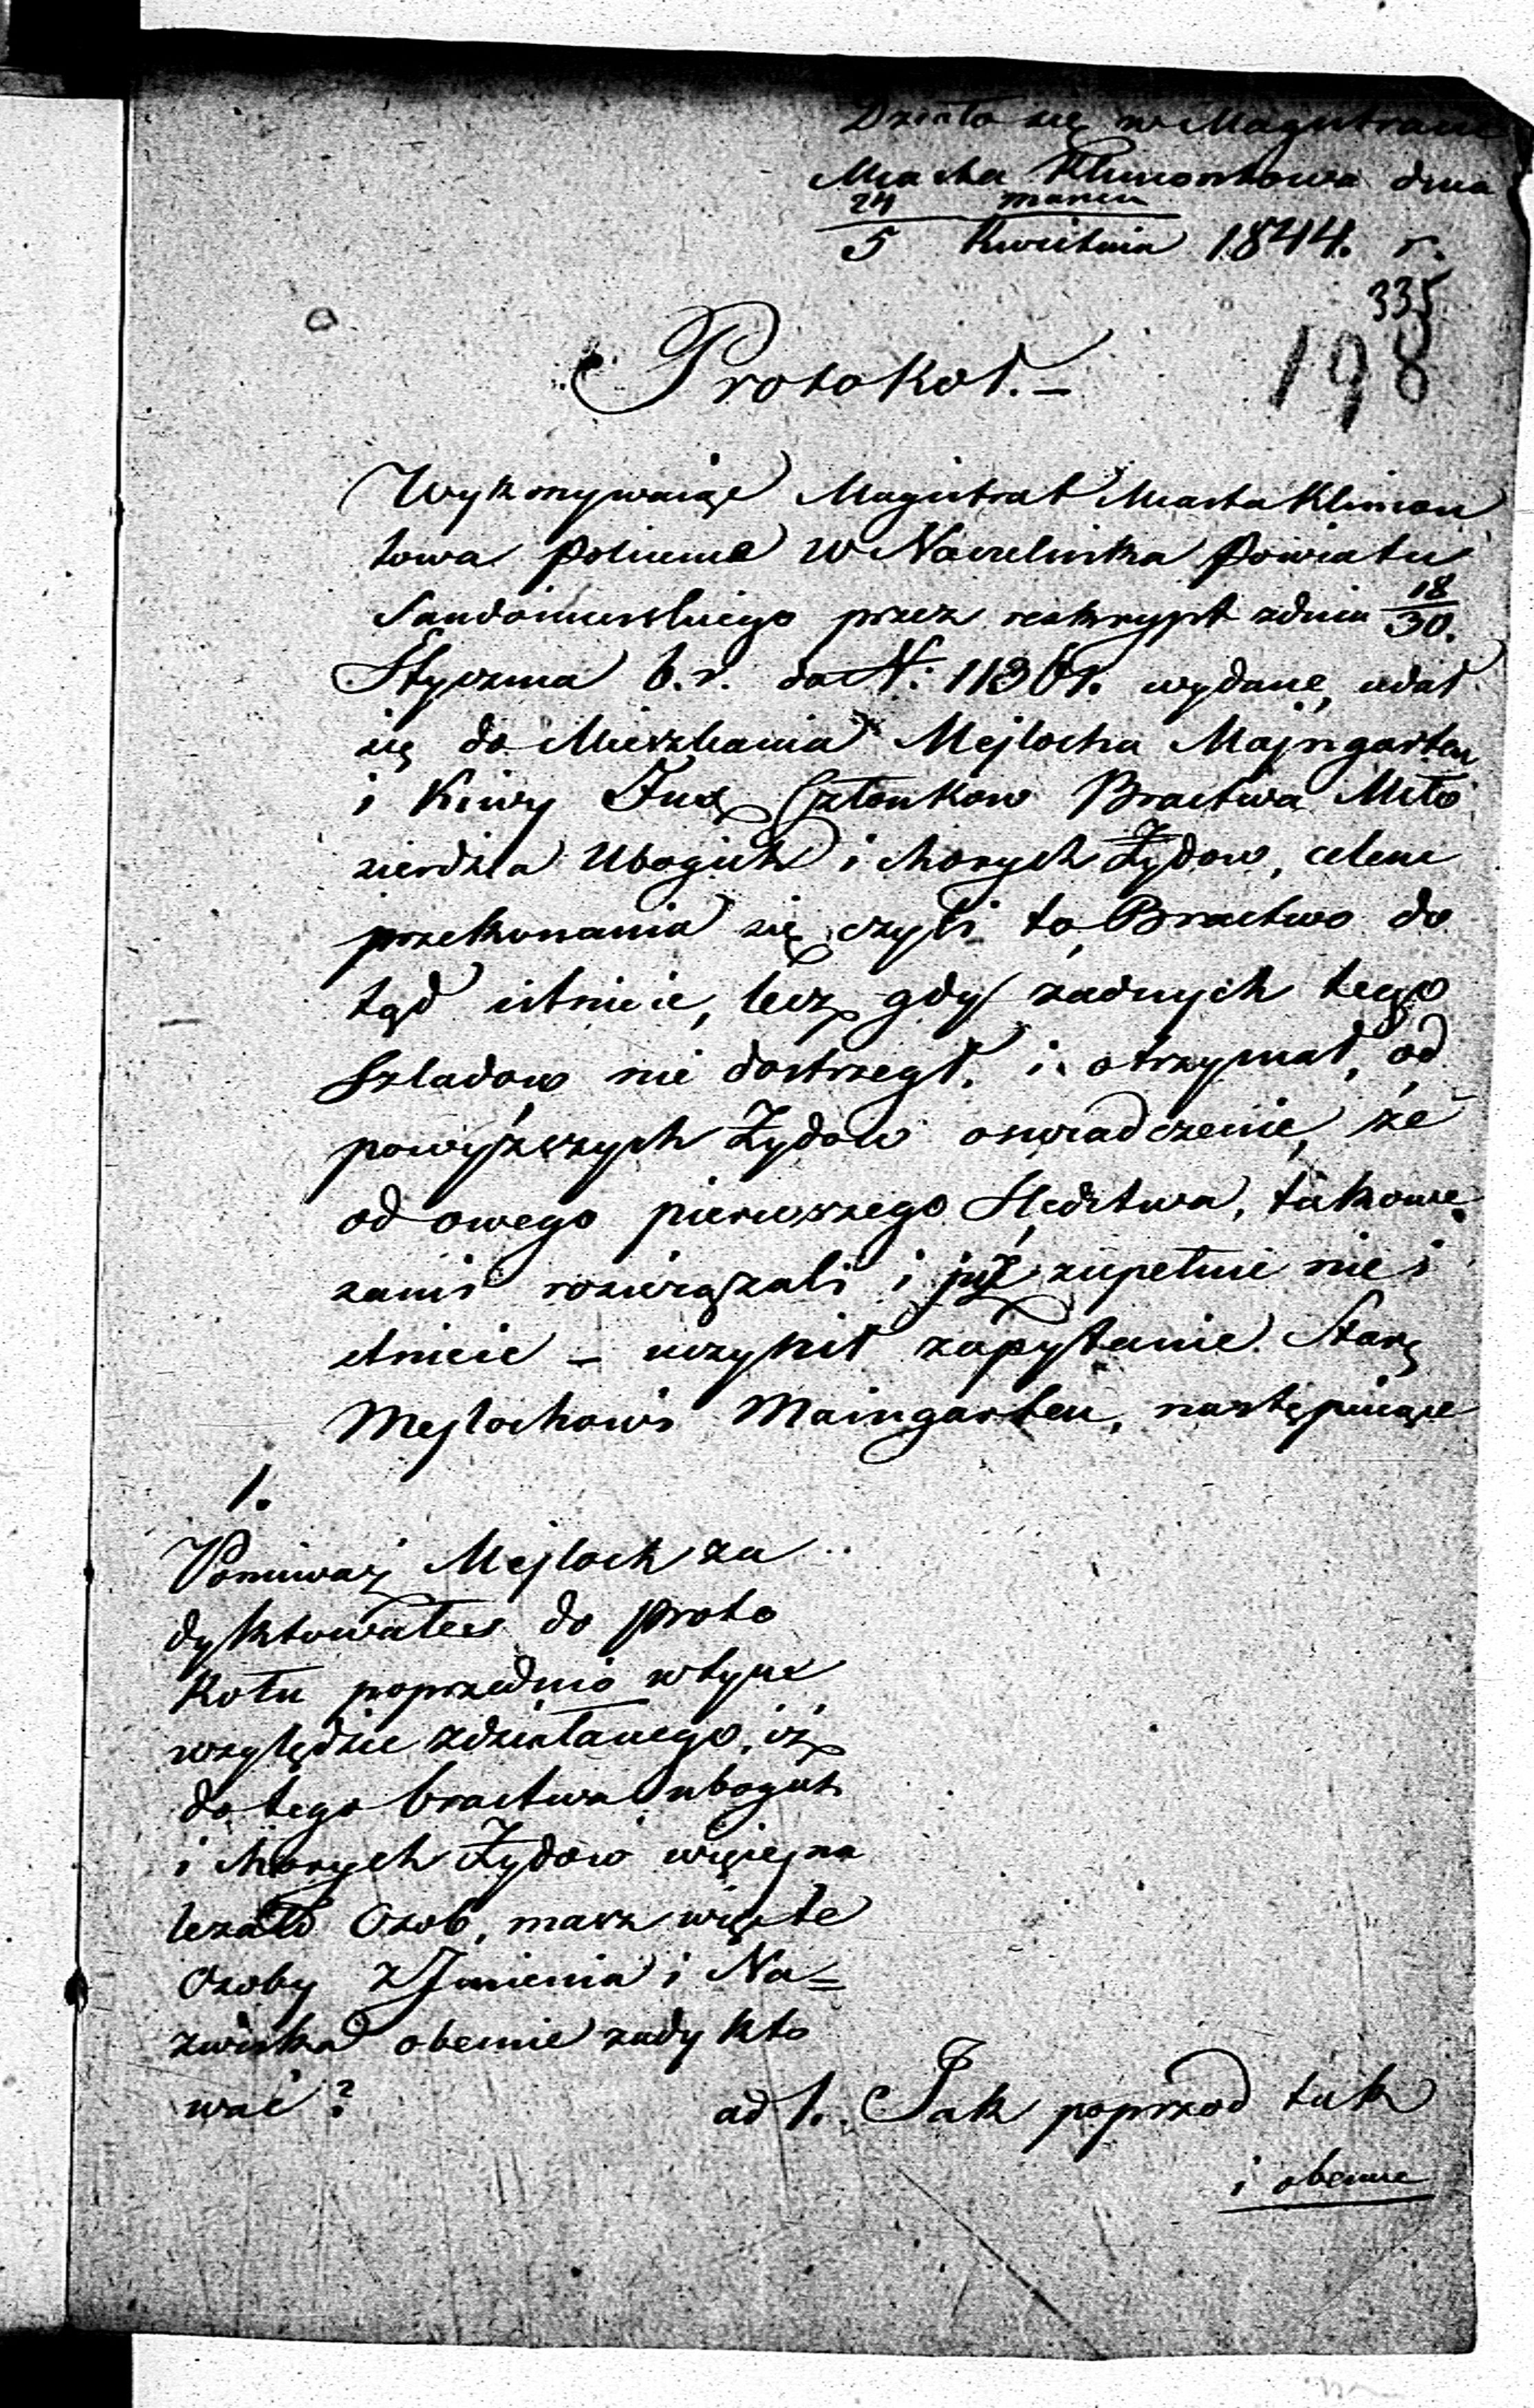 Działo się w Magistracie
Miasta Klimontowa dnia
24 marca
5 Kwietnia 1844. r.
335
198
Protokoł. –
Wykonywaiąc Magistrat Miasta Klimon
towa polecenie W Naczelnika Powiatu
Sandomierskiego przez reskrypt zdnia 18/30.
Stycznia b. r. do N: 11361. wydane, udał
się do Mieszkania Mejlocha Majngarten
i Kiwy Fux Członkow Bractwa Miło
sierdzia Ubogich i chorych Żydow, celem
przekonania się czyli to Bractwo do
tąd istnieie, lecz gdy żadnych tego
szladow nie dostrzegł, i otrzymał, od
powyższych Żydow oswiadczenie, że
od owego pierwszego Sledztwa, takowe
sami rozwiązali i już zupełnie nie i
stnieie – uczynił zapytanie Star:
Mejlochowi Maingarten, następuiące
1.
Poniważ Mejloch za
dyktowałes do proto
kołu poprzednio wtym
względzie zdziałanego, iż
do tego bractwa ubogich
i chorych Żydow więcej na
leżało Osob, masz więc te
Osoby z Jmienia i Na=
zwiska obecnie zadykto
wać?
ad 1. Jak poprzod tak
i obecnie